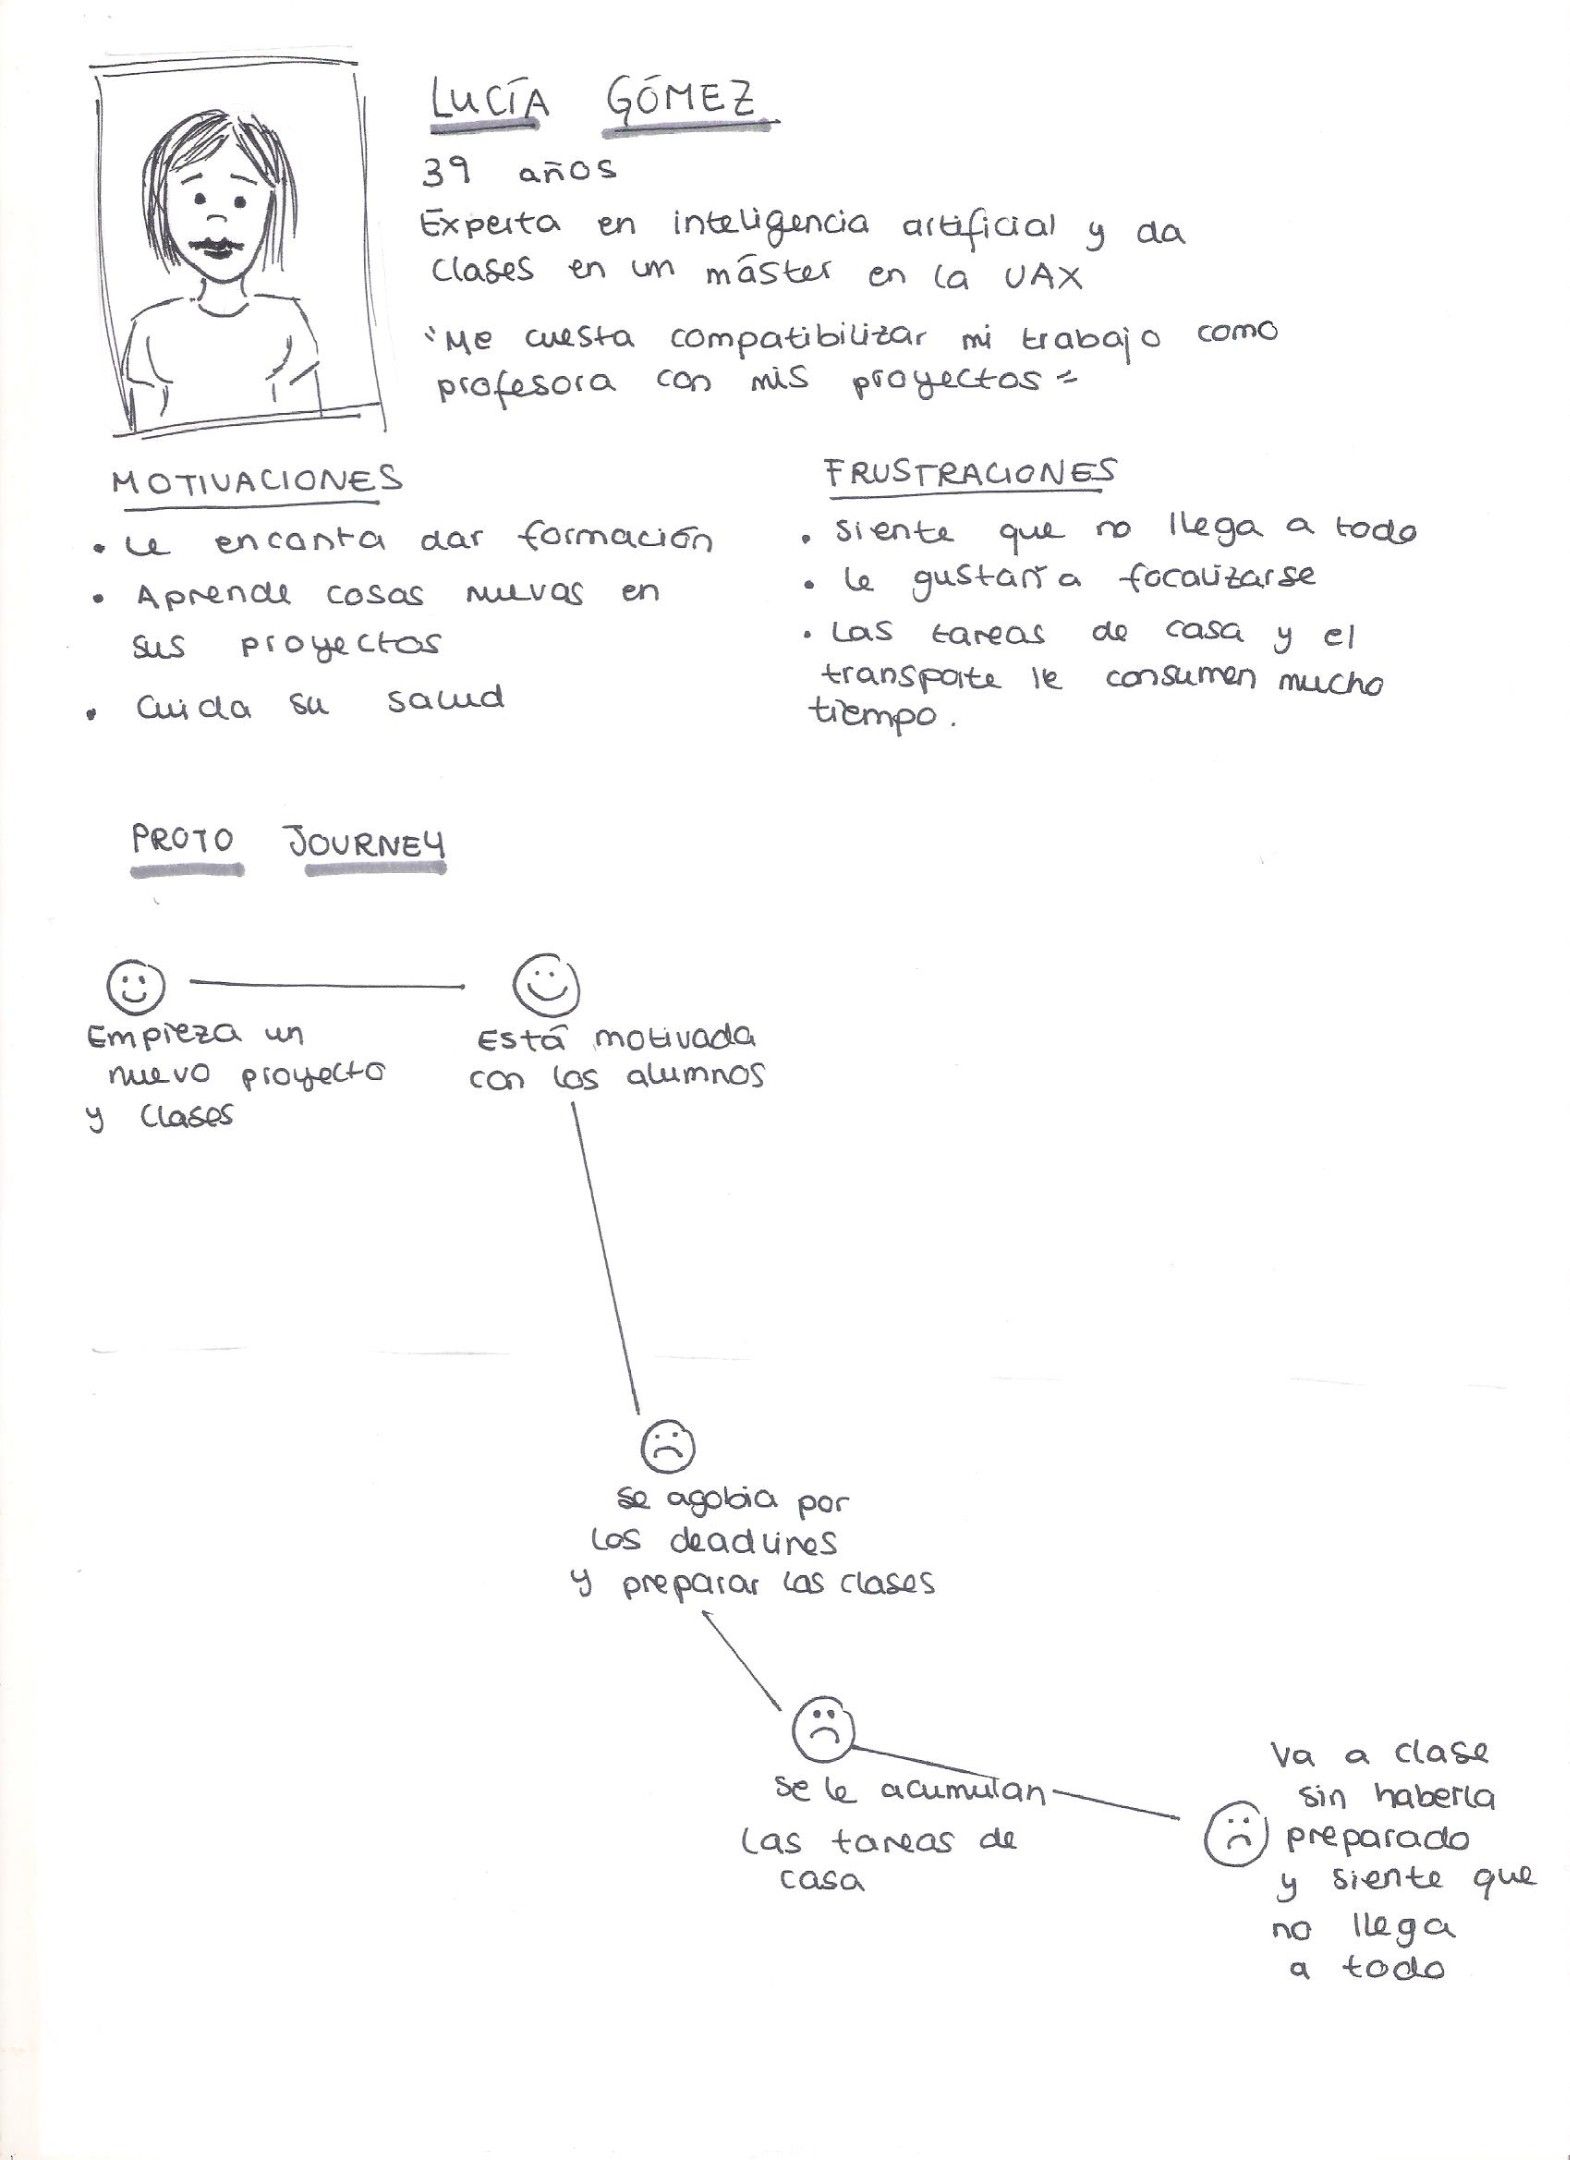 LUCÍA GÓMEZ
39 años
Experta en inteligencia artificial y da
clases en un máster en la UAX
"Me cuesta compatibilizar mi trabajo como
profesora con mis proyectos"
MOTIVACIONES
• Le encanta dar formación
• Aprende cosas nuevas en
sus proyectos
• Cuida su salud
FRUSTRACIONES
• Siente que no llega a todo
• Le gustaría focalizarse
• Las tareas de casa y el
transporte le consumen mucho
tiempo.
PROTO JOURNEY
Empieza un
nuevo proyecto
y clases
Está motivada
con los alumnos
Se agobia por
los deadlines
y preparar las clases
Se le acumulan
las tareas de
casa
Va a clase
sin haberla
preparado
y siente que
no llega
a todo